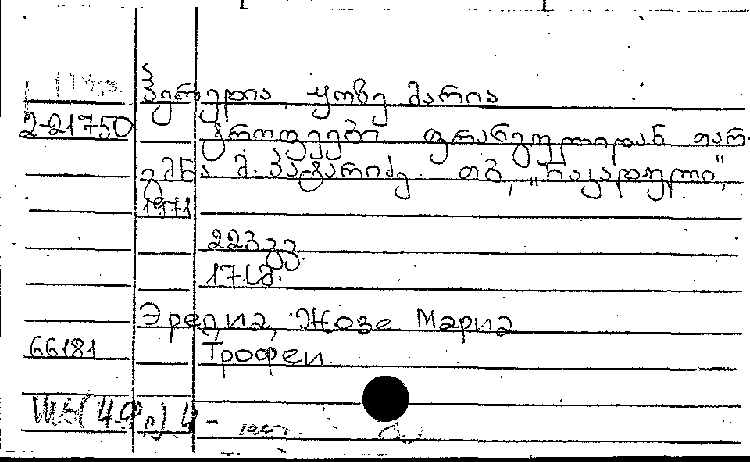 ჰერედია, ჟოზე მარია
2-21750 ტროფეები ფრანგულიდან თარ-
გმნა მ. პატარიძე. თბ., „ნაკადული",
1971
223 გვ
171გ.
Эредиа, Жозе Мариа
66181 Трофеи